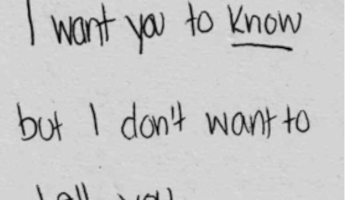 I want you to know
but I don't want to
tell you